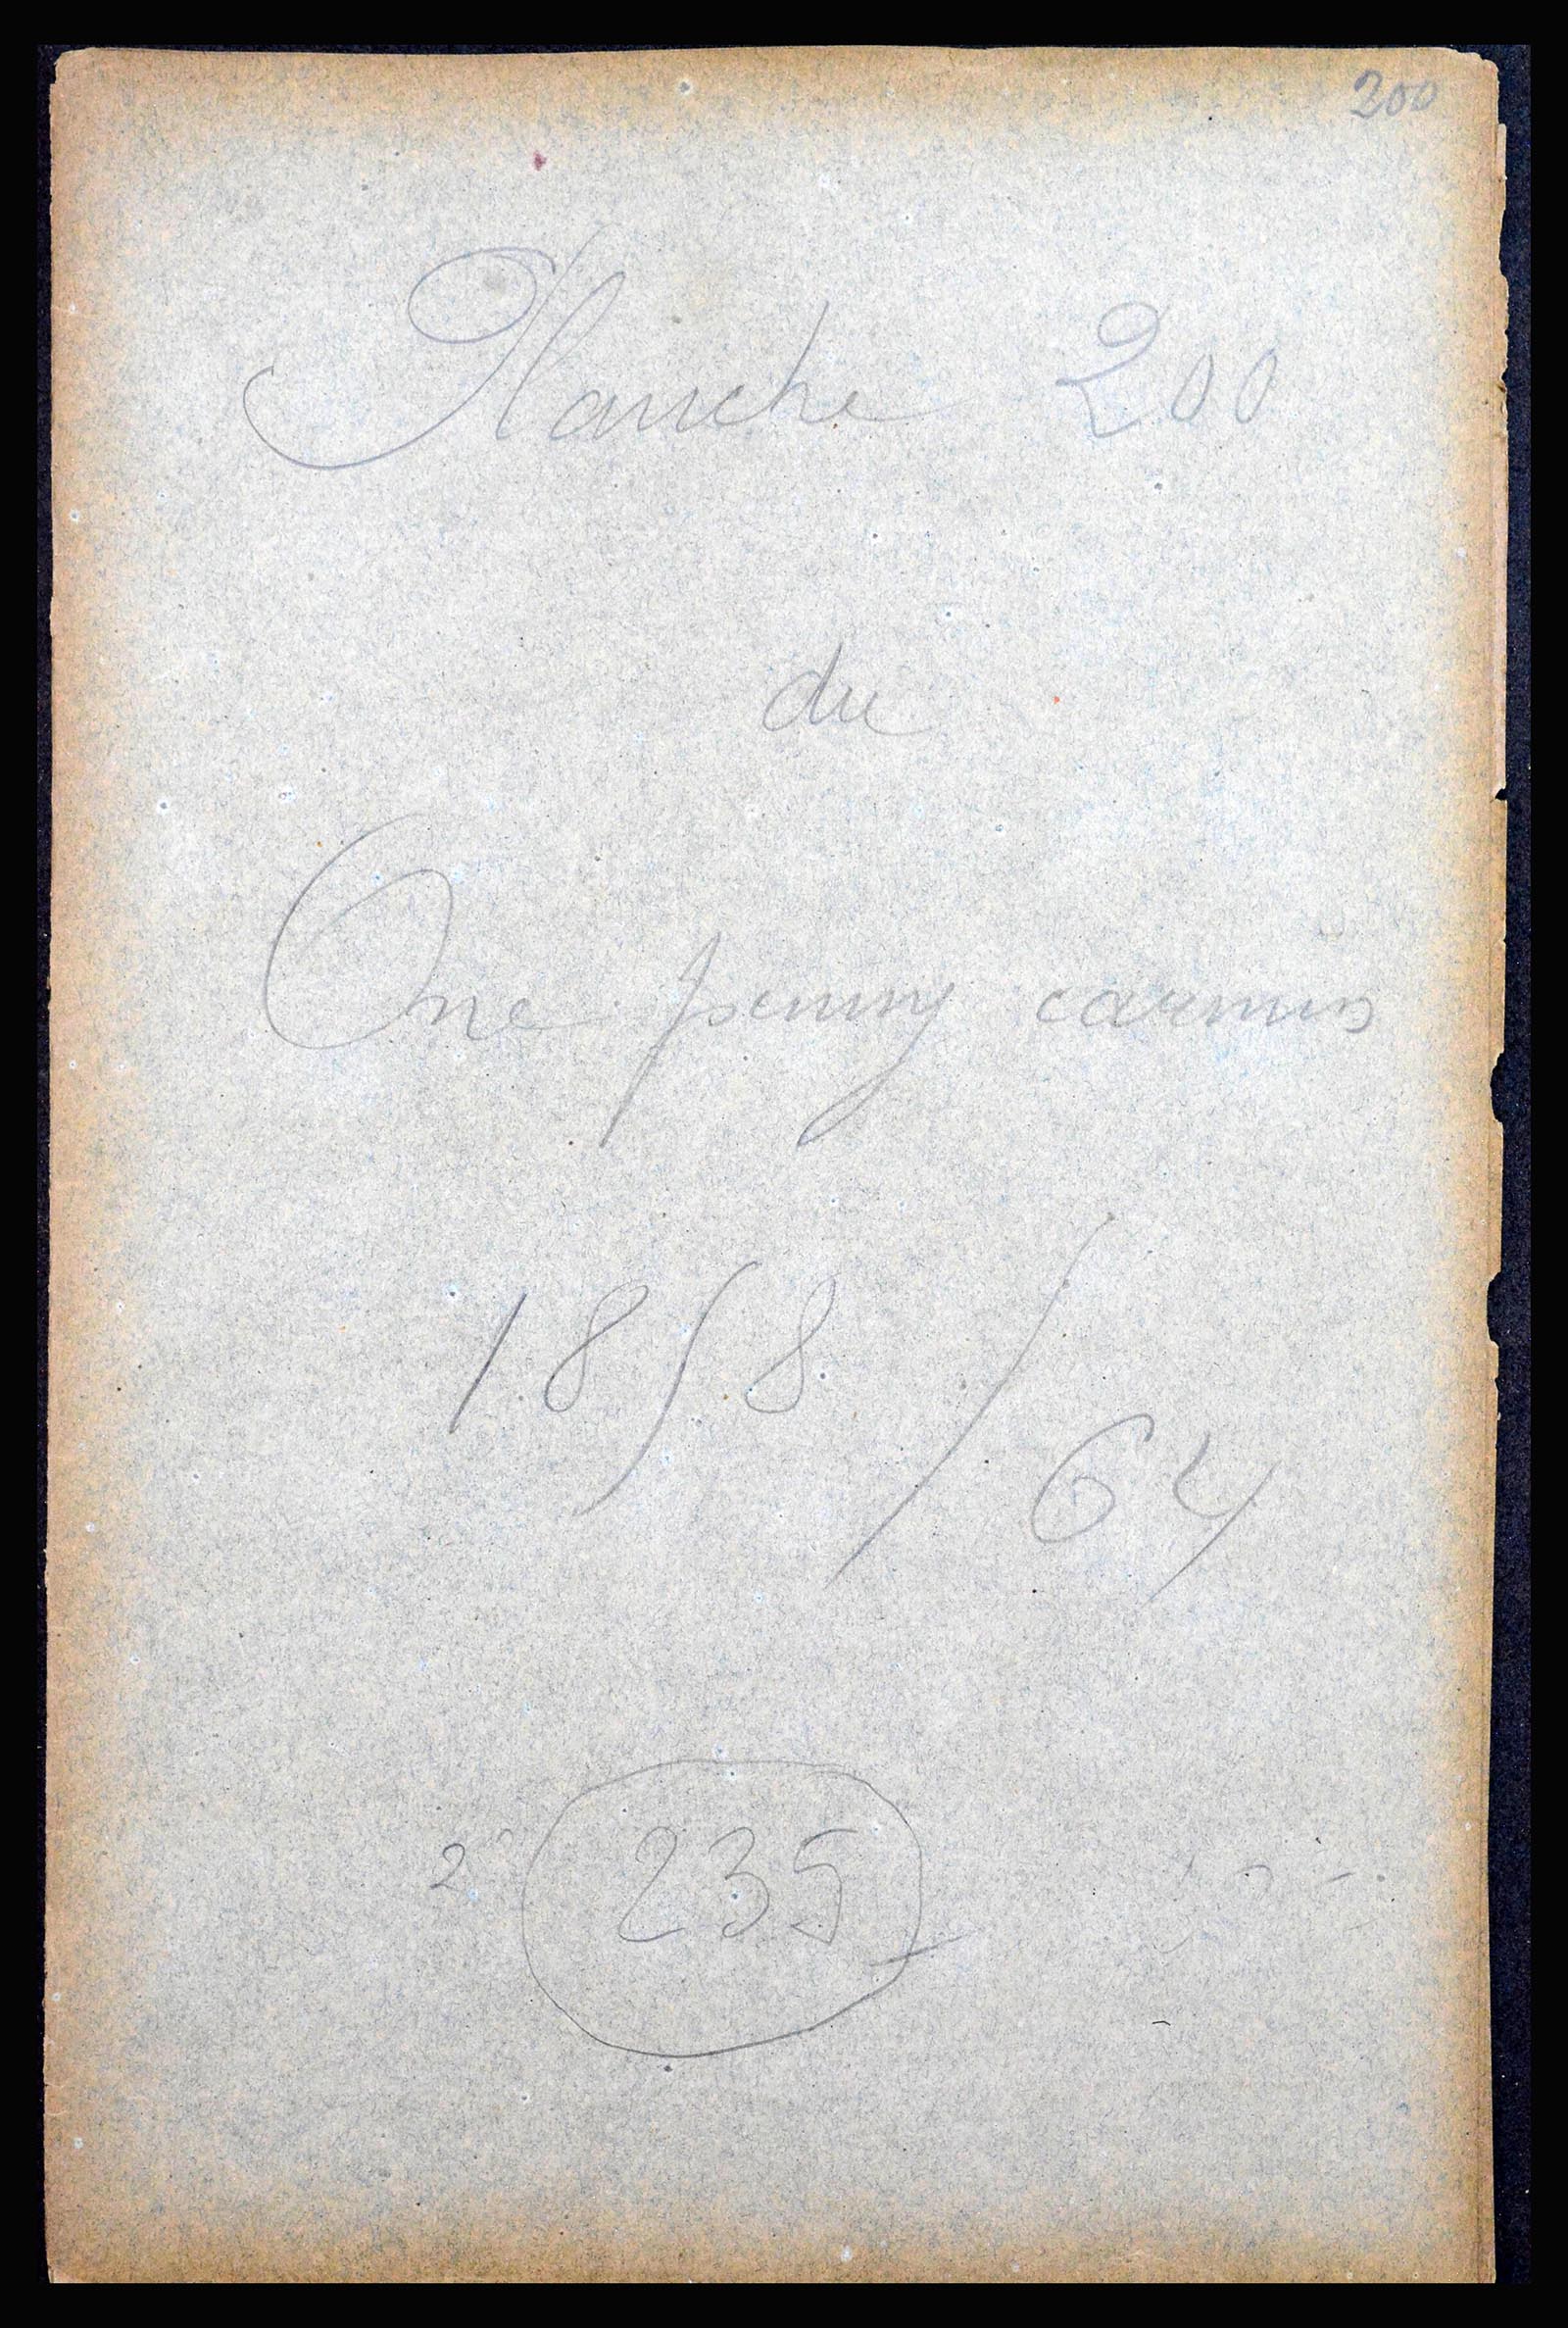 200
Planche 200
du
One penny carmin
1858/64
2 235